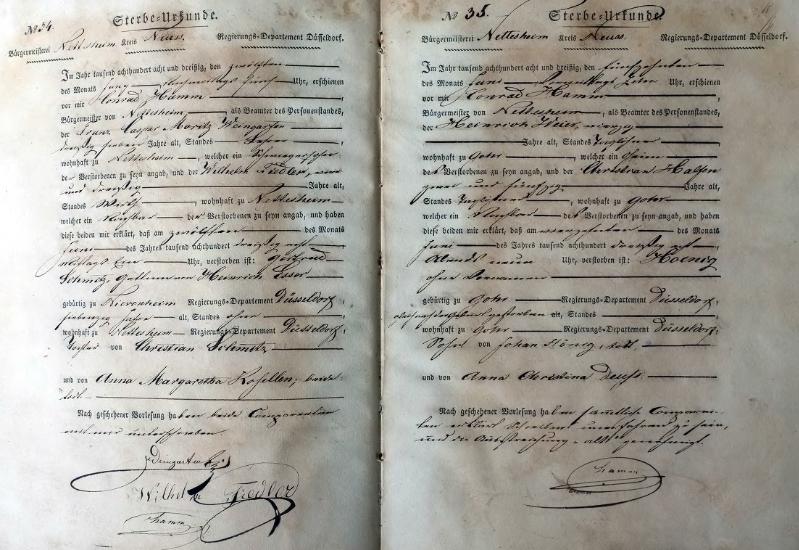 № 34.
Sterbe-Urkunde.
Bürgermeisterei Nettesheim Kreis Neuss Regierungs-Departement Düsseldorf.
Im Jahr tausend achthundert acht und dreißig, den zwölften
des Monats Juny Nachmittags fünf Uhr, erschienen
vor mir Conrad Hamm
Bürgermeister von Nettesheim, als Beamter des Personenstandes,
der Franz Caspar Moritz Weingarten
dreyzig sieben Jahre alt, Standes Lehrer
wohnhaft zu Nettesheim, welcher ein Schwiegersohn
der Verstorbenen zu seyn angab, und der Wilhelm Fiedler,
und dreyzig Jahre alt,
Standes Wirth, wohnhaft zu Nettesheim
welcher ein Nachbar der Verstorbenen zu seyn angab, und haben
diese beiden mir erklärt, daß am zwölften des Monats
Juni des Jahres tausend achthundert dreyzig acht
Mittags Uhr, verstorben ist: Gertrud
Schmitz, Heinrich Esser
gebürtig zu Regierungs-Departement Düsseldorf,
siebenzig Jahre alt, Standes ohne
wohnhaft zu Nettesheim Regierungs-Departement Düsseldorf,
Tochter von Christian Schmitz
und von Anna Margaretha Kosellen, beide
todt.
Nach geschehener Vorlesung haben beide Comparenten
mit mir unterschrieben.
Weingarten
Wilhelm Fiedler
Hamm
№ 35.
Sterbe-Urkunde.
Bürgermeisterei Nettesheim Kreis Neuss Regierungs-Departement Düsseldorf.
Im Jahr tausend achthundert acht und dreißig, den fünfzehnten
des Monats Juni Uhr, erschienen
vor mir Conrad Hamm
Bürgermeister von Nettesheim, als Beamter des Personenstandes,
der Heinrich Meier, vierzig
Jahre alt, Standes Taglöhner
wohnhaft zu Gohr, welcher ein Oheim
des Verstorbenen zu seyn angab, und der Christian
zwei und fünfzig Jahre alt,
Standes Taglöhner, wohnhaft zu Gohr
welcher ein Nachbar des Verstorbenen zu seyn angab, und haben
diese beiden mir erklärt, daß am vierzehnten des Monats
Juni des Jahres tausend achthundert dreyzig acht
Abends neun Uhr, verstorben ist: Hoenig
ohne Vornamen
gebürtig zu Gohr Regierungs-Departement Düsseldorf,
gleich nach der Geburt gestorben alt, Standes
wohnhaft zu Gohr Regierungs-Departement Düsseldorf,
Sohn von Johan Hönig,
und von Anna Christina
Nach geschehener Vorlesung haben sämtliche Comparen-
ten erklärt Schreibens unerfahren zu sein,
und die Ausstreichung alt genehmigt.
Hamm